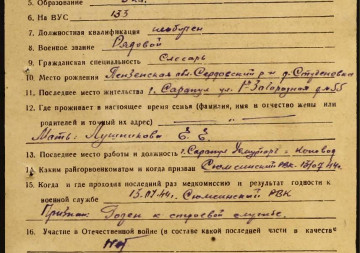 5. Образование 3 кл.
6. На ВУС 133
7. Должностная квалификация необучен
8. Военное звание Рядовой
9. Гражданская специальность Слесарь
10. Место рождения Пензенская обл. Сердобский р-н д. Студеновка
11. Последнее место жительства г. Сарапул ул. Р. Загородная д. №55
12. Где проживает в настоящее время семья (фамилия, имя и отчество жены или
родителей и точный их адрес)
Мать: Лушникова Е. Е.
13. Последнее место работы и должность г. Сарапул - коновод
14. Каким райгорвоенкоматом и когда призван Сюмсинский РВК 13/07 44г.
15. Когда и где проходил последний раз медкомиссию и результат годности к
военной службе 13.07.44г. Сюмсинский РВК
Признан: Годен к строевой службе.
16. Участие в Отечественной войне (в составе какой последней части и в качестве
Нет